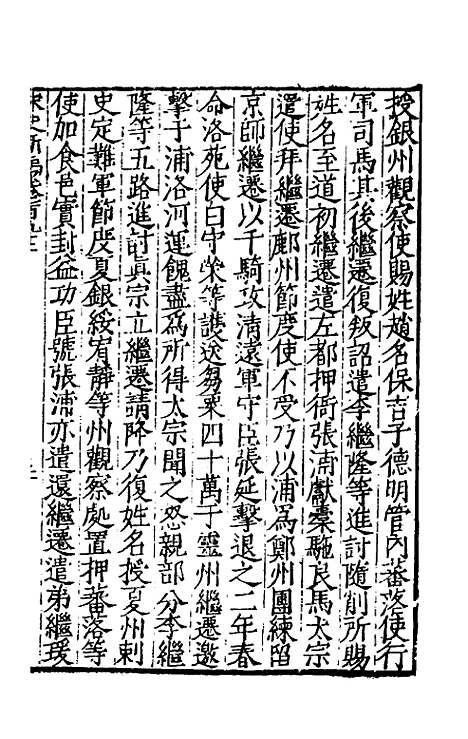 授銀州觀察使賜姓趙名保吉子德明管內蕃落使行
軍司馬其後繼遷復叛詔遣李繼隆等進討隨削所賜
姓名至道初繼遷遣左都押衙張浦獻橐駞良馬太宗
遣使拜繼遷鄜州節度使不受乃以浦爲鄭州團練留
京師繼遷以千騎攻清遠軍守臣張延擊退之二年春
命洛苑使白守榮等護送芻粟四十萬于靈州繼遷邀
擊于浦洛河運餽盡爲所得太宗聞之怒親部分李繼
隆等五路進討眞宗立繼遷請降乃復姓名授夏州刺
史定難軍節度夏銀綏宥靜等州觀察處置押蕃落等
使加食邑實封益功臣號張浦亦遣還繼遷遣弟繼瑗
宋史新編卷百九三